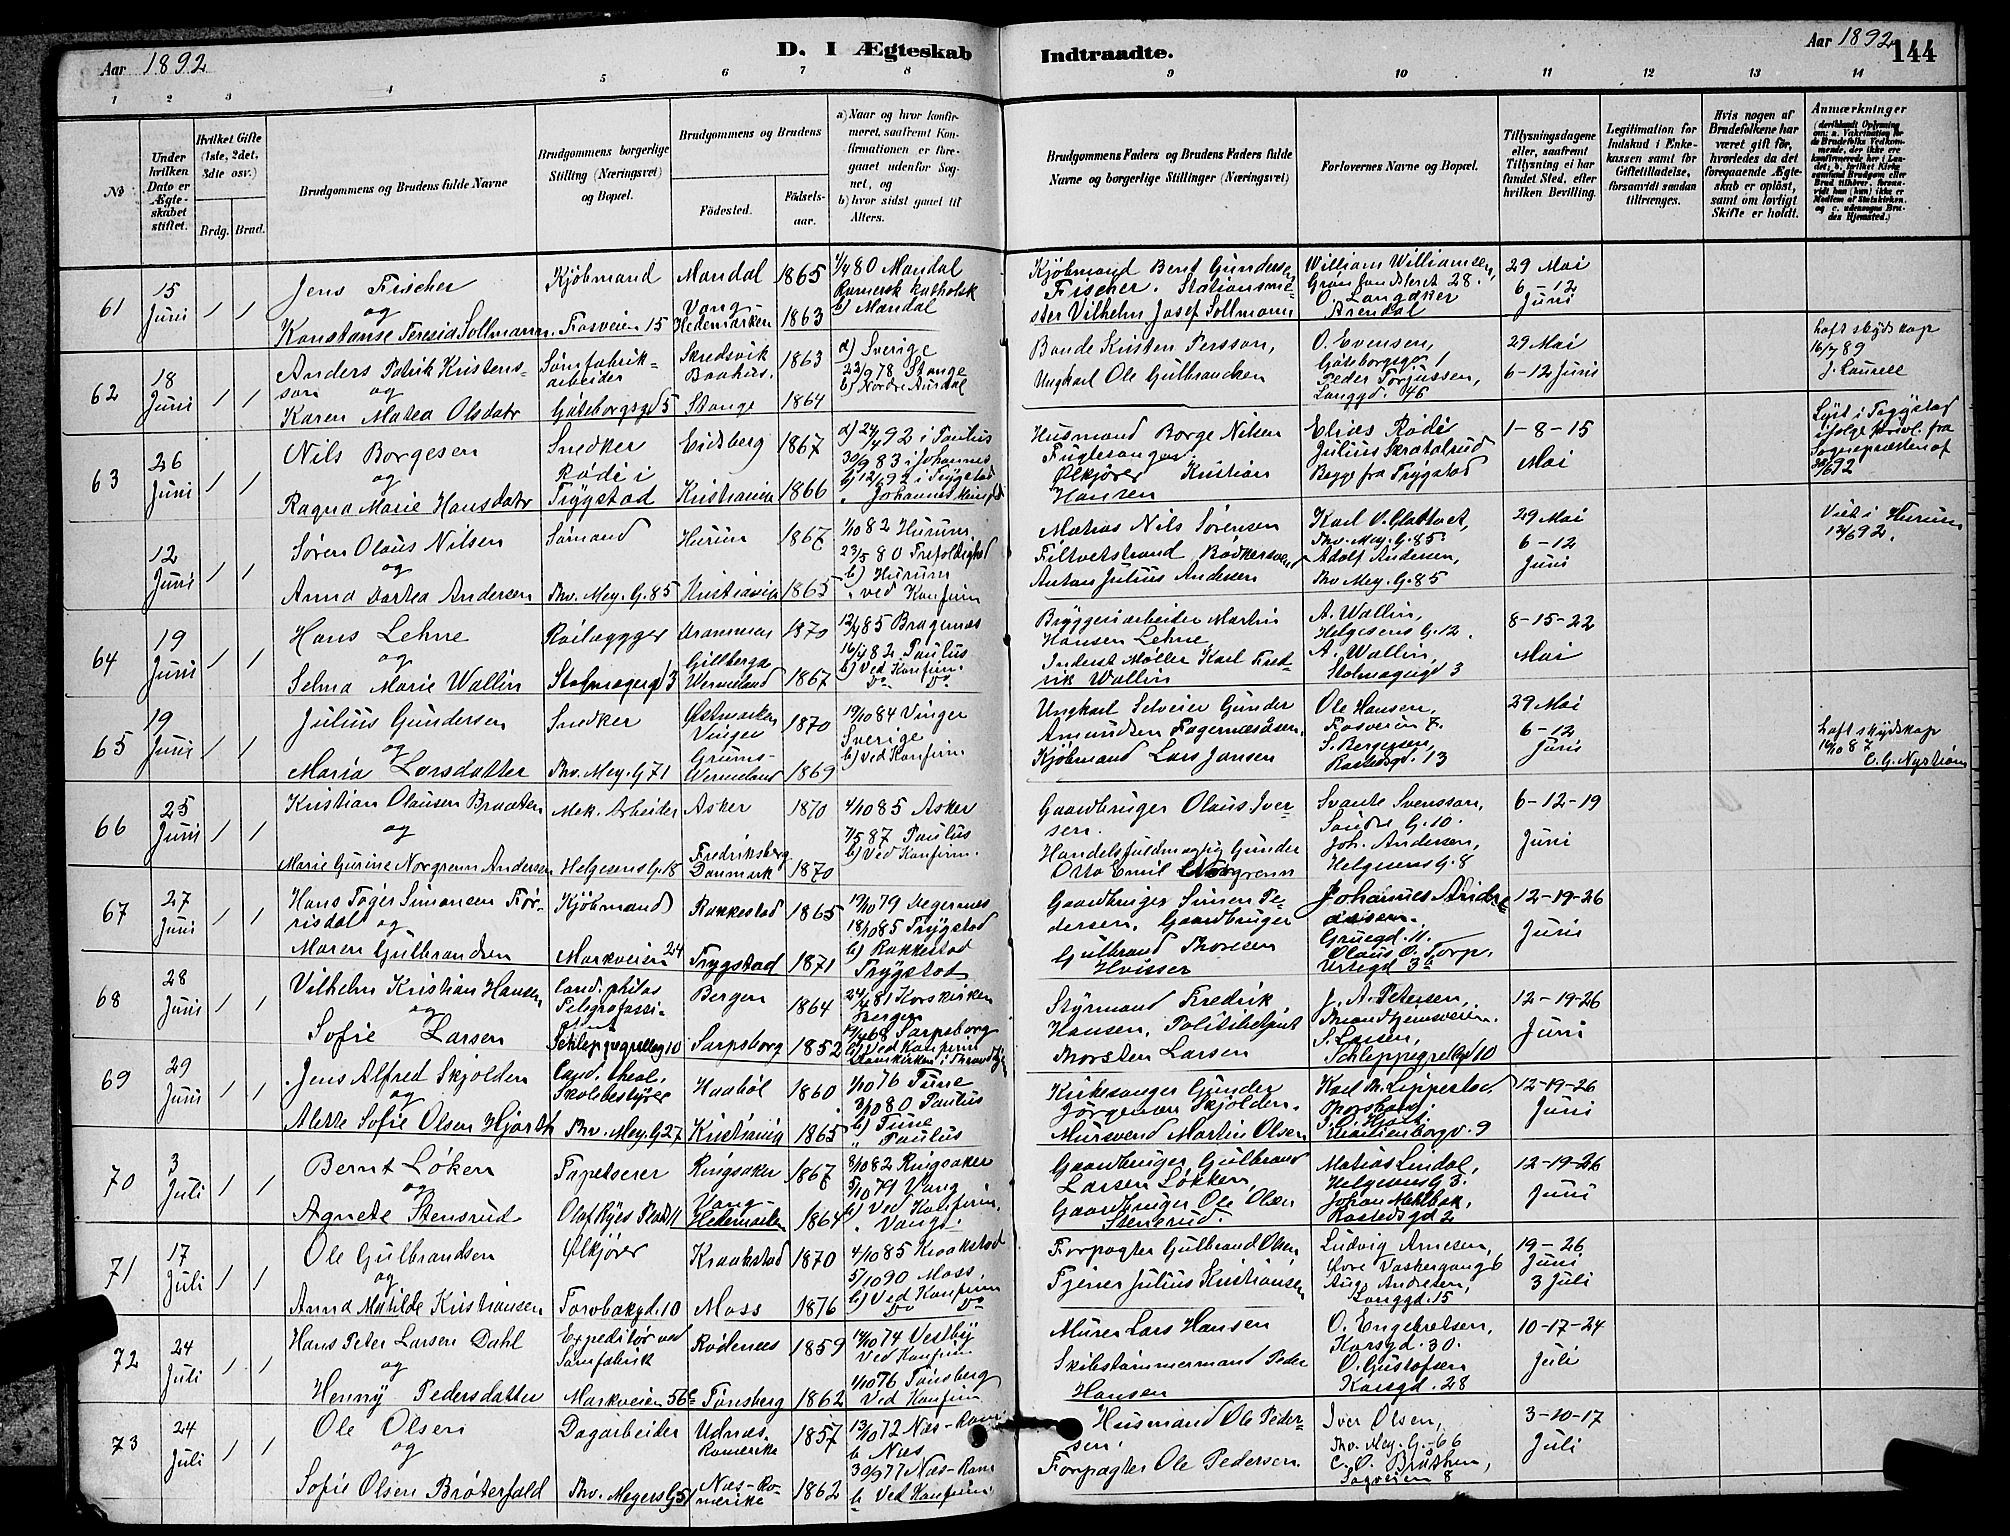 Aar 1892
D. I Ægteskab Indtraadte.
Aar 1892
144
1 2 3 4 5 6 7 8 9 10 11 12 13 14
No
Under hvilken Dato er Ægteskabet stiftet.
Hvilket Gifte (1ste, 2det, 3die osv.)
Brdg. Brud.
Brudgommens og Brudens fulde Navne
Brudgommens borgerlige Stilling (Næringsvei) og Bopæl.
Brudgommens og Brudens
Fødested.
Fødselsaar.
a) Naar og hvor konfirmeret, saafremt Konfirmationen er foregaaet udenfor Sognet, og
b) hvor sidst gaaet til Alters.
Brudgommens Faders og Brudens Faders fulde Navne og borgerlige Stillinger (Næringsvei)
Forlovernes Navne og Bopæl.
Tillysningsdagene eller, saafremt Tillysning ei har fundet Sted, efter hvilken Bevilling.
Legitimation for Indskud i Enkekassen samt for Giftetilladelse, forsaavidt saadan tiltrænges.
Hvis nogen af Brudefolkene har været gift før, hvorledes da det foregaaende Ægteskab er opløst, samt om lovligt Skifte er holdt.
Anmærkninger
61
15 Juni
1 1
Jens Fischer
og
Konstanse Teresia Sollmann
Kjøbmand
Fosveien 15
Mandal 1865
Vang Hedemarken 1863
1/4 80 Mandal
Romersk katholsk
b) Mandal
Kjøbmand Bernt Gundersen
Fischer. Stationsme-
ster Vilhelm Josef Sollmann
William Williamsen,
Grønland 28.
O. Langaker
Arendal
29 Mai
6-12
Juni
62
18 Juni
1 1
Anders Patrik Kristens-
son og
Karen Matea Olsdatr
Sømfabrik-
arbeider
Göteborgsgd 5
Skredsvik
Baahus. 1863
Stange 1864
a) Sverige
22/9 78 Stange
b) Nordre Aurdal
Bonde Kristen Persson,
Ungkarl Ole Gulbrandsen
O. Evensen,
Göteborgsgd 1
Peder Torjussen,
Langgd. 46
29 Mai
6-12 Juni
haft skydskop
16/7 89
J. Laurell
63
26 Juni
1 1
Nils Borgesen
og
Ragna Marie Hansdatr
Snedker
Rødi i
Trygstad
Eidsberg 1867
Kristiania 1866
a) 24/4 92 i Paulus
30/9 83 i Johannes
b) 12/6 92 i Trygstad
Husmand Borge Nilsen
Fuglesangen
Ølkjører Kristian
Hansen
Elias Rødi
Julius Skratalrud
Begge fra Trygstad
1-8-15
Mai
Lyst i Trygstad
ifølge Brevl. fra
Sognepræsten af
12 Juni
1 1
Søren Olaus Nilsen
og
Anna Dortea Andersen
Sømand
Thv. Mey. G. 85
Hurum 1867
Kristiania 1865
1/10 82 Hurum.
23/5 80 Trefoldighed
b) Hurum
" ved Konfirm
Matias Nils Sørensen
Filtvetstrand Bødkersvend
Anton Julius Andersen
Karl O. Glattvet,
Thv. Mey. G. 85.
Adolf Andersen,
Thv. Mey. G. 85
29 Mai
6-12
Juni
Viet i Hurum
12/6 92.
64
19 Juni
1 1
Hans Lehne
og
Selma Marie Wallin
Rørlægger
Stolmagergd 3
Drammen 1870
Gillberga
Wermeland 1867
12/4 85 Bragernæs
16/4 82 Paulus
b) Ved Konfirm.
Do Do
Bryggeriarbeider Martin
Hansen Lehne
Inderst Møller Karl Fred-
rik Wallin
A. Wallin,
Helgesens G. 12.
A. Wallin,
Stolmagergd 3
8-15-22
Mai
65
19 Juni
1 1
Julius Gundersen
og
Maria Larsdatter
Snedker
Thv. Mey. G 71
Østmarken
Vinger 1870
Grums-
Wermeland 1869
19/10 84 Vinger
Sverige
b) Ved Konfirm
Ungkarl Selveier Gunder
Amundsen Fagernæsåsen.
Kjøbmand Lars Jansen
Ole Hansen,
Fosveien 7.
S. Bergersen,
13
29 Mai
6-12
Juni
haft skydskop
E. G. Nystrøm
66
25 Juni
1 1
Kristian Olausen Braaten
og
Marie Gurine Norgrenn Andersen
Mek. Arbeider
Helgesens G. 18
Asker 1870
Fredriksberg
Danmark 1870
4/10 85 Asker
7/5 87 Paulus
b) Ved Konfirm.
Gaardbruger Olaus Iver-
sen.
Handelsfuldmægtig Gunder
Otto Emil Norgrenn
Svante Svensson,
Søndre G. 10.
Joh. Andersen,
Helgesens G. 8
6-12-19
Juni
67
27 Juni
1 1
Hans Tøger Simonsen Tør-
risdal og
Maren Gulbrandsen
Kjøbmand
Markveien 24
Rakkestad 1865
Trygstad 1871
12/10 79 Degernes
18/10 85 Trygstad
b) Rakkestad
Trygstad
Gaardbruger Simen Pe-
dersen, Gaardbruger
Gulbrand Thoresen
Hvisser
Johannes Andre-
assen.
Gruegd. 11.
Olaus O. Torp.
Urtegd 3a
12-19-26
Juni
68
28 Juni
1 1
Vilhelm Kristian Hansen
og
Sofie Larsen
Cand. philos
Telegrafassi-
stent
Schleppegrellsg 10
Bergen 1864
Sarpsborg 1852
24/4 81 Korskirken
Bergen
Sarpsborg
b) Ved Konfirm
Domkirken i Throndhjem
Styrmand Fredrik
Hansen, Politibetjent
Thorsten Larsen
J. A. Petersen,
Throndhjemsveien.
S. Larsen,
Schleppegrellgd 10
12-19-26
Juni
69
29 Juni
1 1
Jens Alfred Skjolden
og
Alette Sofie Olsen Hjorth
Cand. theol.
Skolebestyrer
Thv. Mey. G 27
Haabøl 1860
Kristiania 1865
1/10 76 Tune
3/10 80 Paulus
b) Tune
" Paulus
Kirkesanger Gunder
Jørgensen Skjolden.
Mursvend Martin Olsen
Karl Th. Lippestad
9
12-19-26
Juni
70
3 Juli
1 1
Bernt Løken
og
Agnete Stensrud
Tapetserer
Olaf Ryes Plads 11
Ringsaker 1867
Vang-
Hedemarken 1864
8/10 82 Ringsaker
5/10 79 Vang
b) Ved Konfirm.
" Vang.
Gaardbruger Gulbrand
Larsen Løkken,
Gaardbruger Ole Olsen
Stenerud.
Matias Lindal,
Helgesens G 3.
Johan Mehlbak,
Rostedsgd 2
12-19-26
Juni
71
17 Juli
1 1
Ole Gulbrandsen
og
Anna Matilde Kristiansen
Ølkjører
Torvbakgd. 10
Kraakstad 1870
Moss 1876
4/10 85 Kraakstad
5/10 90 Moss.
b) Ved Konfirm
Do Do
Forpagter Gulbrand Olsen
Tjener Julius Kristiansen
Ludvig Arnesen,
Øvre Vaskergang 6
Aug. Andresen,
Langgd. 15
19-26
Juni
3 Juli
72
24 Juli
1 1
Hans Peter Larsen Dahl
og
Henny Pedersdatter
Expeditør ved
Sømfabrik
Markveien 56c
Rødenes 1859
Tønsberg 1862
11/10 74 Vestby
Ved Konfirm
1/10 76 Tønsberg
Ved Konfirm
Murer Lars Hansen
Skibstømmermand Peder
Hansen
O. Engebretsen,
Korsgd. 30.
O. Gustofsen
Korsgd. 28
10-17-24
Juli
73
24 Juli
1 1
Ole Olsen
og
Sofie Olsen Brøterfald
Dagarbeider
Thv. Meyers G 51
Udnæs.
Romerike 1857
Næs-Ro-
merike 1862
13/10 72 Næs-Rom
b Næs
30/9 77 Næs-Rom
b Ved Konfirm
Husmand Ole Peder-
sen.
Forpagter Ole Pedersen.
Iver Olsen,
Thv. Mey. G.-66
C. O. Bråthen,
Sagveien 8
3-10-17
Juli